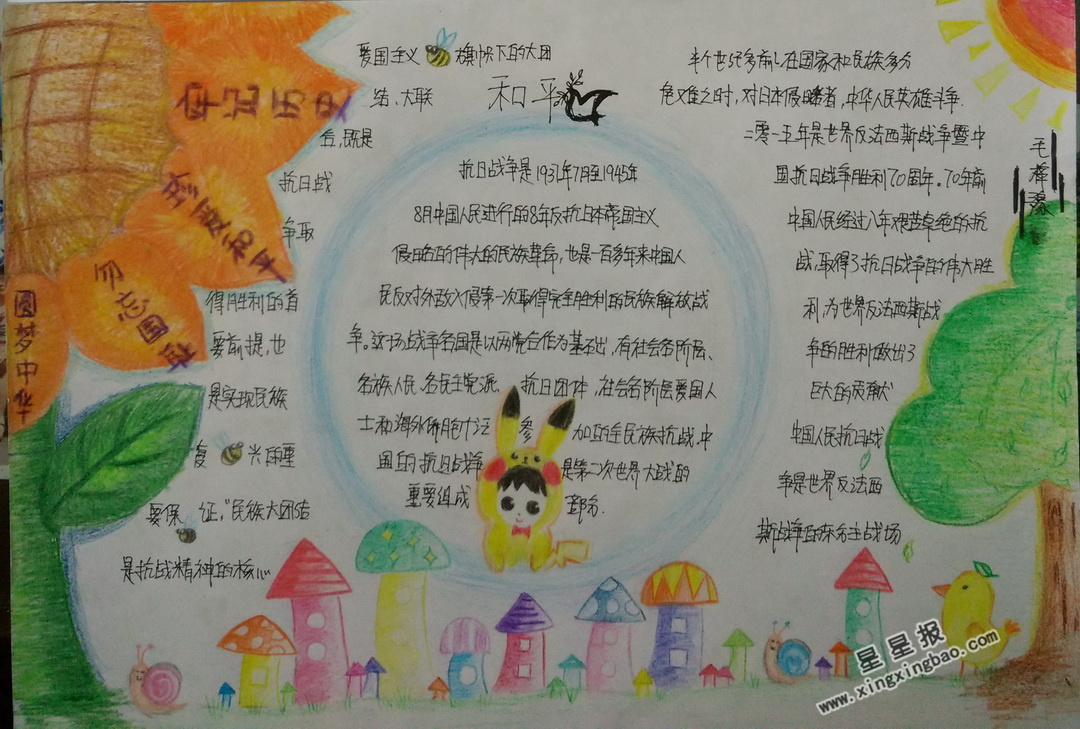 牢记历史
珍爱和平
勿忘国耻
圆梦中华
爱国主义 旗帜下的大团
结、大联
合,既是
抗日战
争取
得胜利的首
要前提,也
是实现民族
复 兴的重
要保 证。"民族大团结
是抗战精神的核心
和平
抗日战争是1937年7月至1945年
8月中国人民进行的8年反抗日本帝国主义
侵略的伟大的民族革命,也是一百多年来中国人
民反对外敌入侵第一次取得完全胜利的民族解放战
争。这场战争各国是以两党合作为基础,有社会各阶层、
各族人民、各民主党派、抗日团体、社会各阶层爱国人
士和海外侨胞广泛 参 加的全民族抗战,中
国的抗日战争 是第二次世界大战的
重要组成 部分.
半个世纪多前,在国家和民族多分
危难之时,对日本侵略者,中华人民英雄斗争.
二零一五年是世界反法西斯战争暨中
国抗日战争胜利70周年。70年前
中国人民经过八年艰苦卓绝的抗
战,取得了抗日战争的伟大胜
利,为世界反法西斯战
争的胜利做出了
巨大的贡献
中国人民抗日战
争是世界反法西
斯战争的东方主战场
毛梓
星星报
www.xingxingbao.com